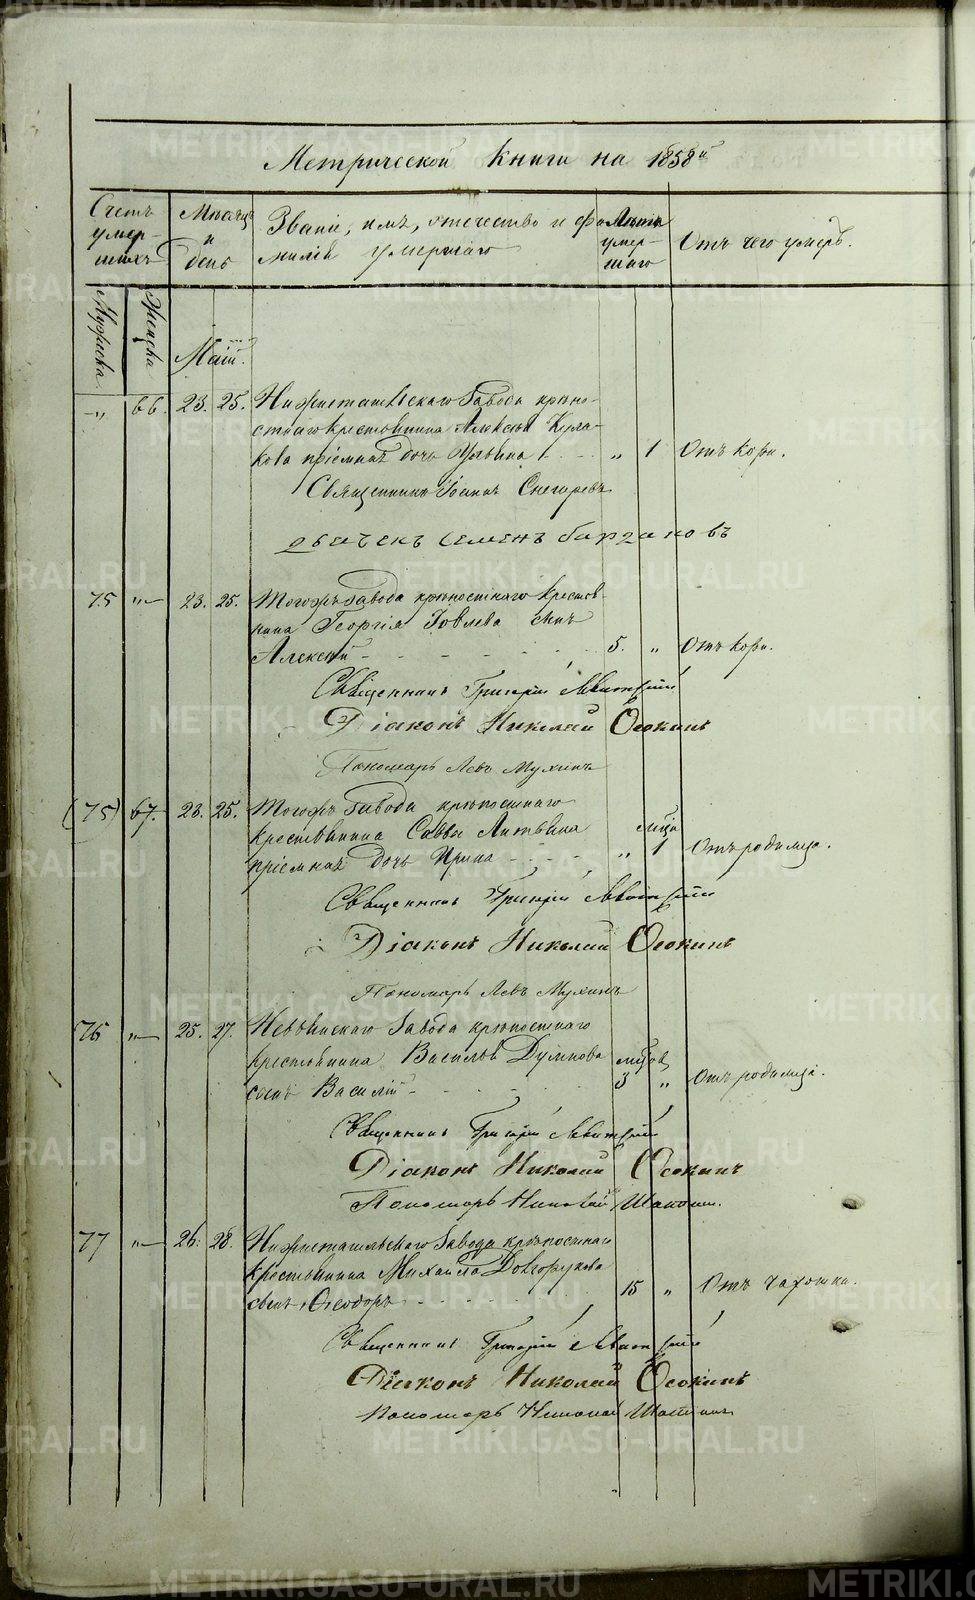 Метрической книги на 1858й
Счетъ умер-шихъ
Мужеска
Женска
Мѣсяцъ и день
Званіе, имя, отечество и фамилія умершаго
Лѣта умер-шаго
Отъ чего умеръ.
Маій.
„ 66. 23. 25. Нижнетагильскаго Завода крѣпо-
стнаго крестьянина Алексѣя Кула-
кова пріемная дочь „ 1 Отъ кори.
Священникъ Іоаннъ Снегиревъ
дьячекъ Семенъ барзановъ
75 „ 23. 25. Тогожъ Завода крѣпостнаго крестья-
нина Георгія Іовлева сынъ
Алексѣй 5. „ Отъ кори.
Священникъ Григорій
Діаконъ Николай Осокинъ
Пономарь Левъ Мухинъ
(75) 67. 23. 25. Тогожъ Завода крѣпостнаго
крестьянина Саввы Литвина мѣсяц
пріемная дочь Ирина „ 1 Отъ родимца.
Священникъ Григорій
Діаконъ Николай Осокинъ
Пономарь Левъ Мухинъ
76 „ 25. 27. Невьянскаго Завода крѣпостнаго
крестьянина Василья
сынъ Василій 3 „ Отъ родимца.
Священникъ Григорій
Діаконъ Николай Осокинъ
Пономарь Николай
77 „ 26. 28. Нижнетагильскаго Завода крѣпостнаго
крестьянина Михаила Долгорукова
сынъ Ѳеодоръ 15 „ Отъ чахотки.
Священникъ Григорій
Діаконъ Николай Осокинъ
Пономарь Николай
METRIKI.GASO-URAL.RU